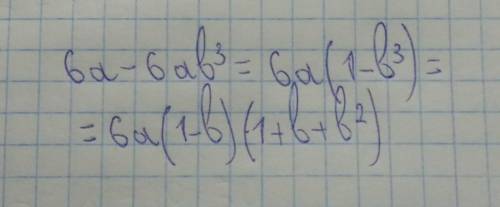 6a - 6ab³ = 6a(1-b³) =
= 6a(1-b)(1+b+b²)